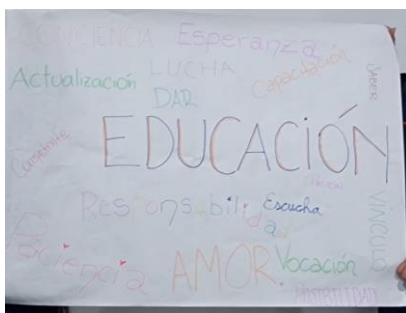 CONCIENCIA Esperanza
Actualización LUCHA Capacitación
DAR
SABER
EDUCACIÓN
Constante
Responsabilidad Escucha
VINCULO
Paciencia AMOR. Vocación